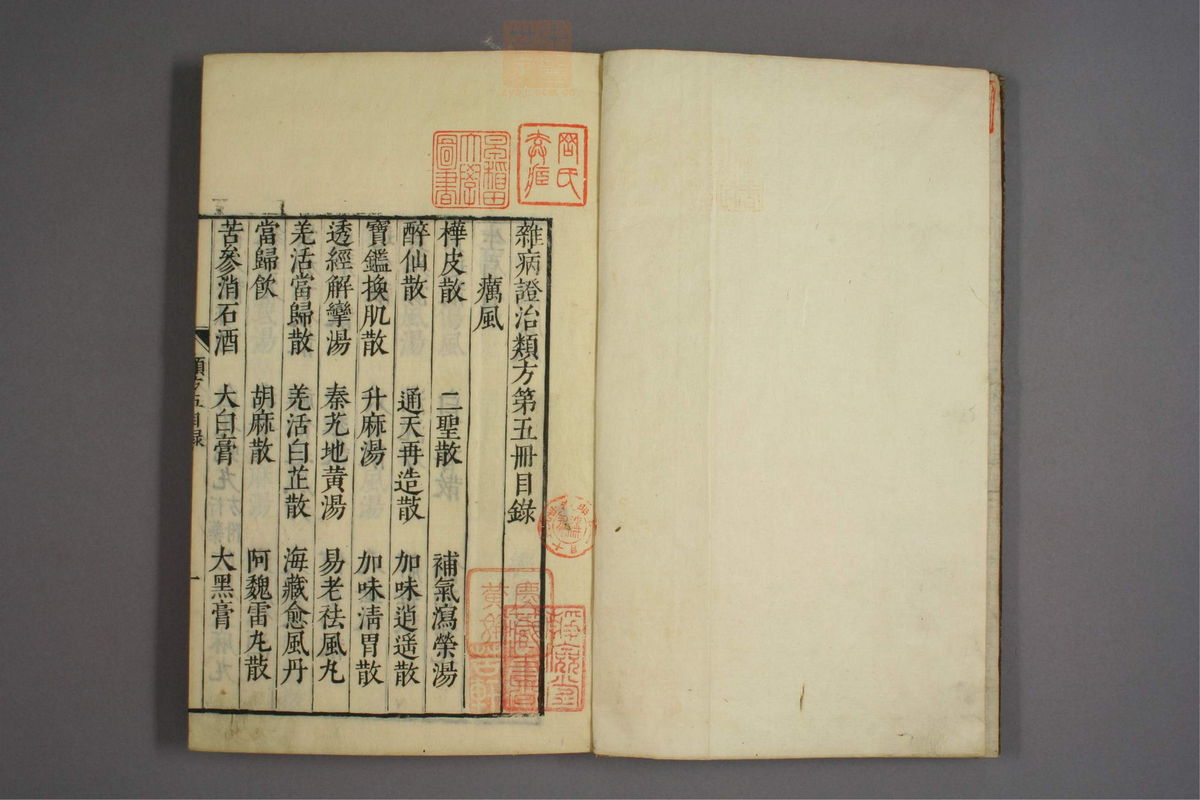 雜病證治類方第五冊目錄
癘風
樺皮散 二聖散 補氣瀉榮湯
醉仙散 通天再造散 加味逍遥散
寶鑑換肌散 升麻湯 加味清胃散
透經解攣湯 秦艽地黃湯 易老祛風丸
羌活當歸散 羌活白芷散 海藏愈風丹
當歸飲 胡麻散 阿魏雷丸散
苦參消石酒 大白膏 大黑膏
類方五目録
一
早稻田大學圖書